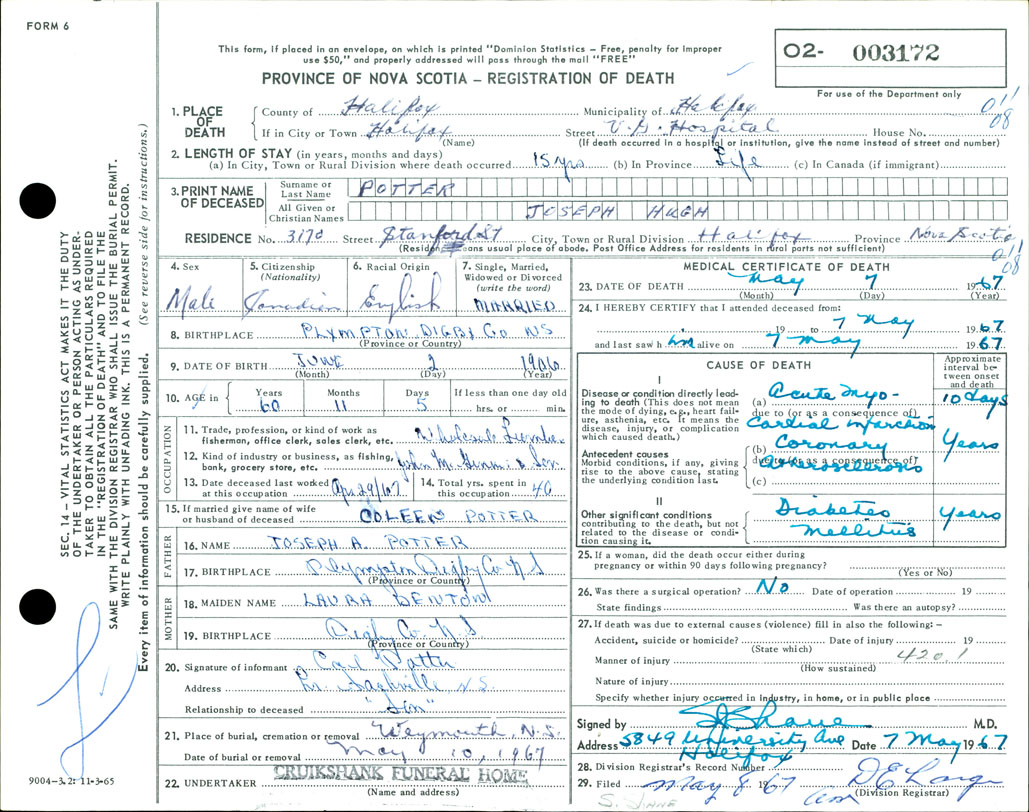 FORM 6
This form, if placed in an envelope, on which is printed "Dominion Statistics – Free, penalty for improper
use $50," and properly addressed will pass through the mail "FREE"
PROVINCE OF NOVA SCOTIA – REGISTRATION OF DEATH
O2- 003172
For use of the Department only
SEC. 14 – VITAL STATISTICS ACT MAKES IT THE DUTY
OF THE UNDERTAKER OR PERSON ACTING AS UNDER-
TAKER TO OBTAIN ALL THE PARTICULARS REQUIRED
IN THE "REGISTRATION OF DEATH" AND TO FILE THE
SAME WITH THE DIVISION REGISTRAR WHO SHALL ISSUE THE BURIAL PERMIT.
WRITE PLAINLY WITH UNFADING INK. THIS IS A PERMANENT RECORD.
Every item of information should be carefully supplied. (See reverse side for instructions.)
1. PLACE OF DEATH
County of Halifax Municipality of Halifax
If in City or Town Halifax Street V.G. Hospital House No.
(Name) (If death occurred in a hospital or institution, give the name instead of street and number)
011
08
2. LENGTH OF STAY (in years, months and days)
(a) In City, Town or Rural Division where death occurred 15 yrs (b) In Province Life (c) In Canada (if immigrant)
3. PRINT NAME OF DECEASED
Surname or Last Name POTTER
All Given or Christian Names JOSEPH HUGH
RESIDENCE No. 3170 Street Stanford St City, Town or Rural Division Halifax Province Nova Scotia
(Residence means usual place of abode. Post Office Address for residents in rural parts not sufficient)
011
08
4. Sex
Male
5. Citizenship
(Nationality)
Canadian
6. Racial Origin
English
7. Single, Married,
Widowed or Divorced
(write the word)
MARRIED
8. BIRTHPLACE PLYMPTON DIGBY Co NS
(Province or Country)
9. DATE OF BIRTH JUNE 2 1906
(Month) (Day) (Year)
10. AGE in
Years Months Days If less than one day old
60 11 5 hrs. or min.
OCCUPATION
11. Trade, profession, or kind of work as
fisherman, office clerk, sales clerk, etc. Wholesale Lumber
12. Kind of industry or business, as fishing,
bank, grocery store, etc. John M. & Son
13. Date deceased last worked
at this occupation Apr 29/67
14. Total yrs. spent in
this occupation 40
15. If married give name of wife
or husband of deceased COLEEN POTTER
FATHER
16. NAME JOSEPH A. POTTER
17. BIRTHPLACE Plympton Digby Co. N S
(Province or Country)
MOTHER
18. MAIDEN NAME LAURA DENTON
19. BIRTHPLACE Digby Co. N S
(Province or Country)
20. Signature of informant Carl Potter
Address Sackville N.S.
Relationship to deceased "Son"
21. Place of burial, cremation or removal Weymouth, N.S.
Date of burial or removal May 10, 1967
22. UNDERTAKER CRUIKSHANK FUNERAL HOME
(Name and address)
9004-3.2: 11-3-65
MEDICAL CERTIFICATE OF DEATH
23. DATE OF DEATH May 7 1967
(Month) (Day) (Year)
24. I HEREBY CERTIFY that I attended deceased from:
19 to 7 May 1967
and last saw him alive on 7 May 1967
CAUSE OF DEATH
Approximate
interval be-
tween onset
and death
I
Disease or condition directly lead-
ing to death (This does not mean
the mode of dying, e.g., heart fail-
ure, asthenia, etc. It means the
disease, injury, or complication
which caused death.)
(a) Acute Myo- 10 days
due to (or as a consequence of)
cardial infarction
Antecedent causes
Morbid conditions, if any, giving
rise to the above cause, stating
the underlying condition last.
(b) Coronary Years
due to (or as a consequence of)
Atherosclerosis
(c)
II
Other significant conditions
contributing to the death, but not
related to the disease or condi-
tion causing it.
Diabetes Years
Mellitus
25. If a woman, did the death occur either during
pregnancy or within 90 days following pregnancy?
(Yes or No)
26. Was there a surgical operation? No Date of operation 19
State findings Was there an autopsy?
27. If death was due to external causes (violence) fill in also the following: –
Accident, suicide or homicide? Date of injury 19
(State which)
Manner of injury 420.1
(How sustained)
Nature of injury
Specify whether injury occurred in industry, in home, or in public place
Signed by S Shane M.D.
Address 5849 University Ave Date 7 May 1967
Halifax
28. Division Registrar's Record Number
29. Filed May 8 1967
(Division Registrar)
S. SHANE